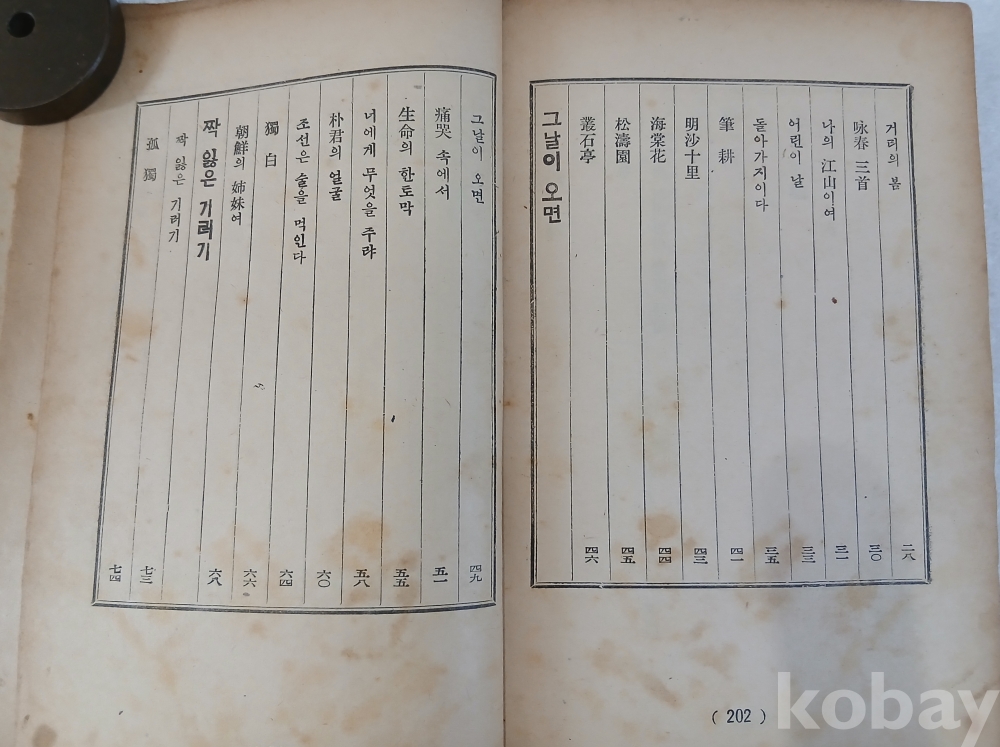 거리의 봄 二八
咏春 三首 三〇
나의 江山이여 三一
어린이 날 三三
돌아가지이다 三五
筆耕 四一
明沙十里 四三
海棠花 四四
松濤園 四五
叢石亭 四六
그날이 오면
( 202 )
그날이 오면 四九
痛哭 속에서 五一
生命의 한토막 五五
너에게 무엇을 주랴 五八
朴君의 얼굴 六〇
조선은 술을 먹인다 六四
獨白 六六
朝鮮의 姉妹여 六八
짝 잃은 기러기
짝 잃은 기러기 七三
孤獨 七四
kobay